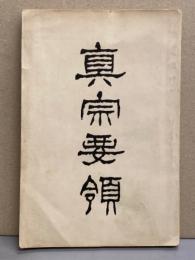 真宗要領